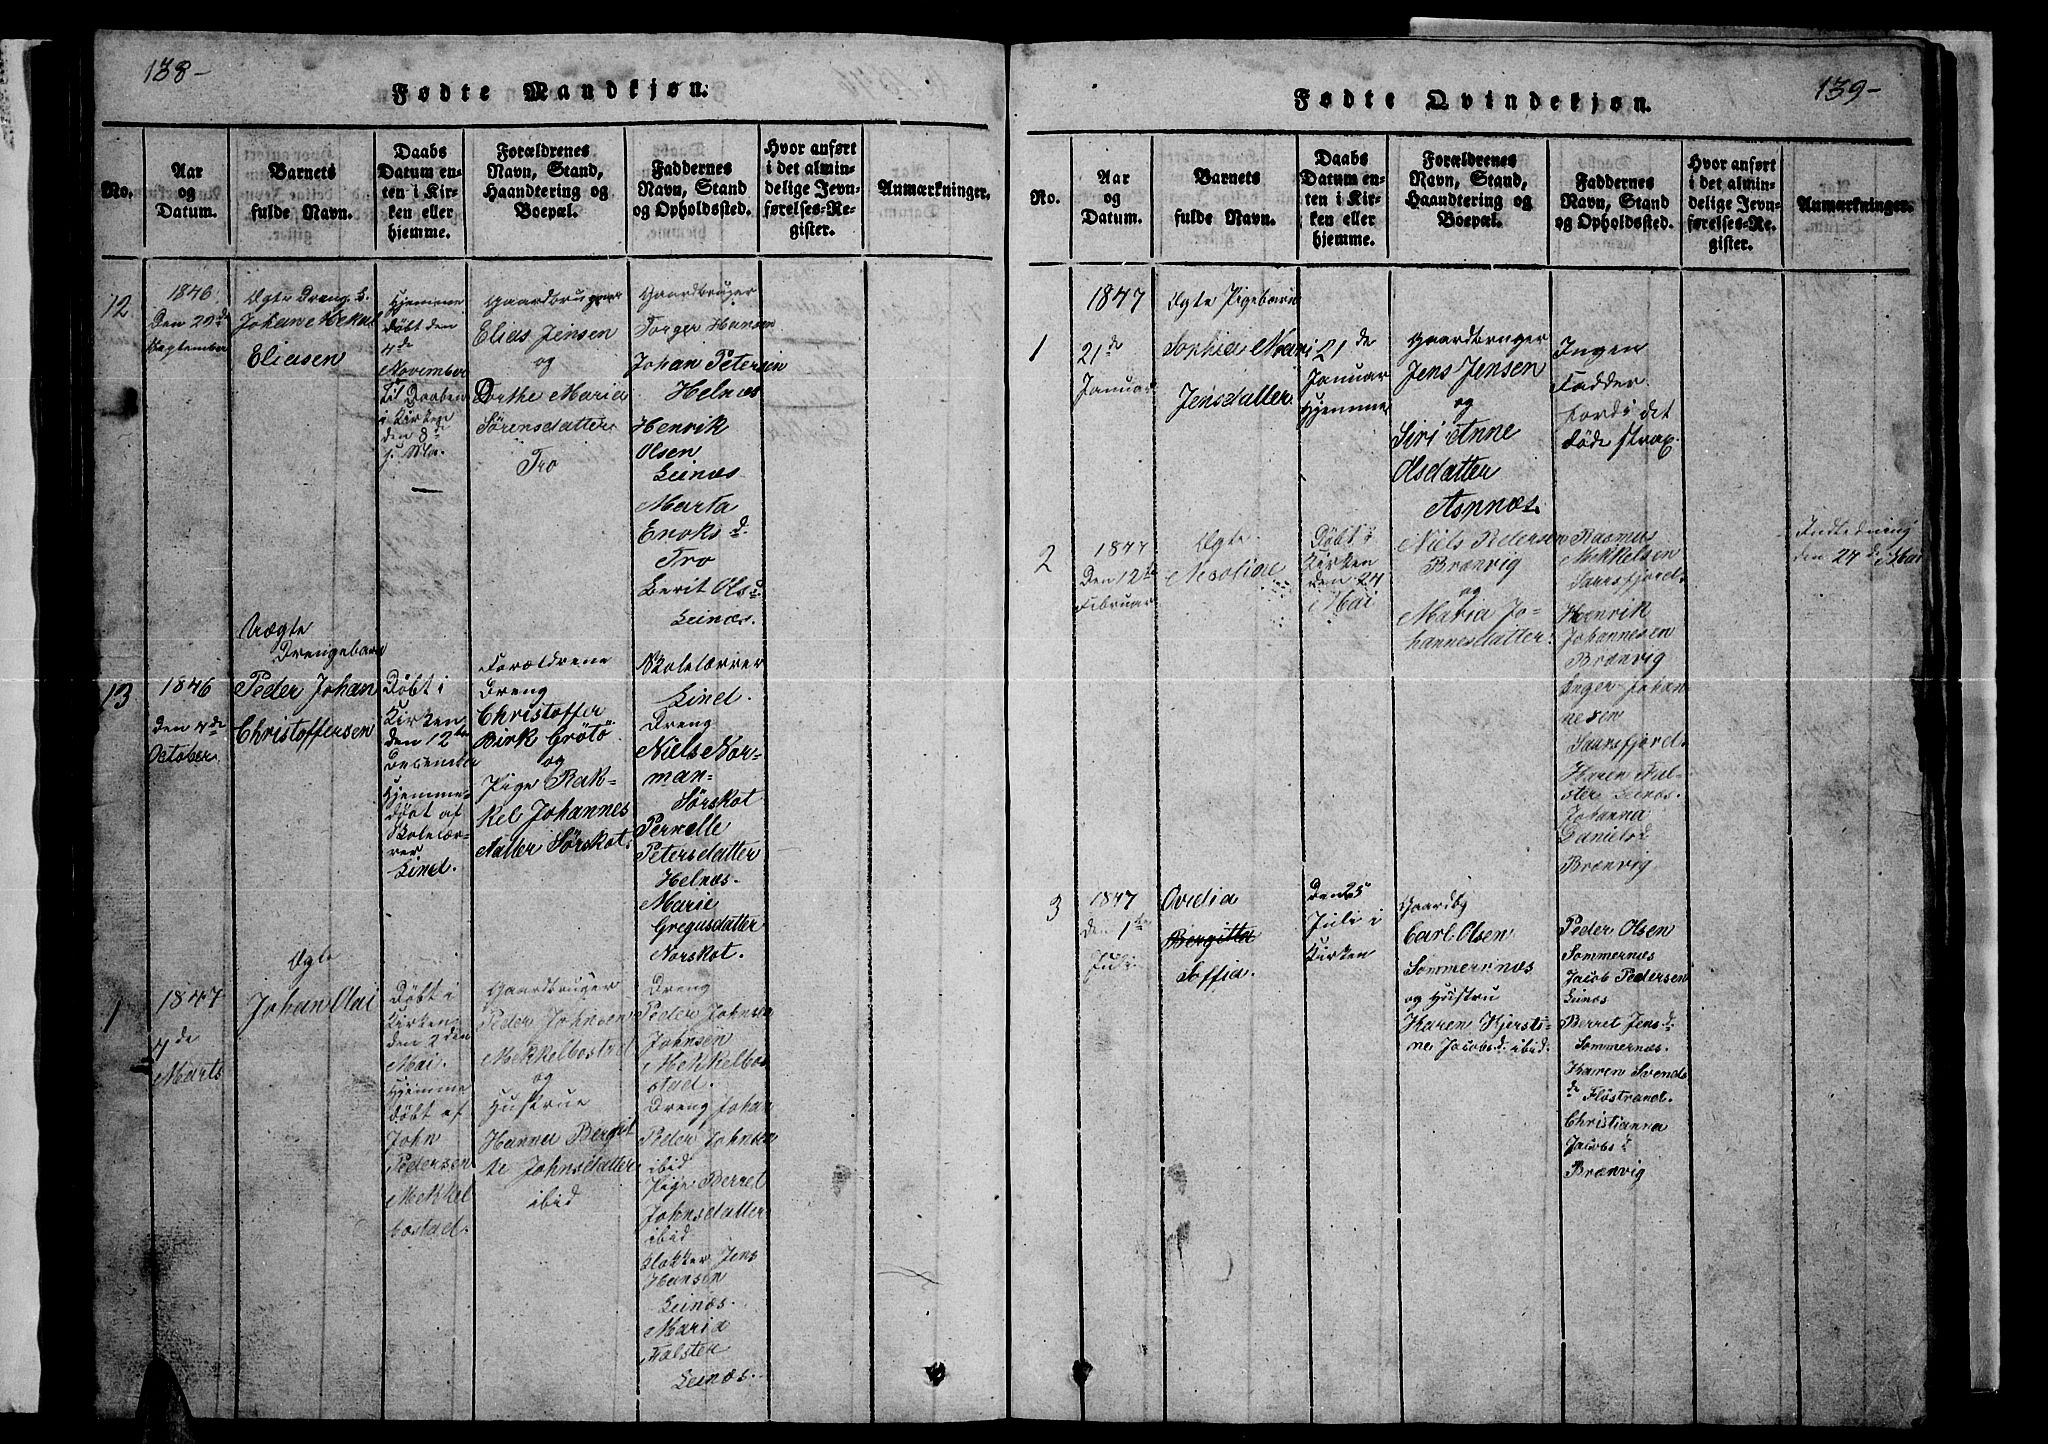 138-
Fødte Mandkjøn.
No.
Aar
og
Datum.
Barnets
fulde Navn.
Daabs
Datum en-
ten i Kir-
ken eller
hjemme.
Forældrenes
Navn, Stand,
Haandtering og
Boepæl.
Faddernes
Navn, Stand
og Opholdssted.
Hvor anført
i det almin-
delige Jevn-
førelses-Re-
gister.
Anmærkninger.
12
1846
Den 29de
September
Ægte Dreng b.
Johan Mekal
Eliasen
Hjemme
døbt den
4de
November
Til Daaben
i Kirken
den 8de
Gaardbruger
Elias Jensen
og
Dorthe Maria
Sørensdatter
Tro
Gaardbruger
Torger Hansen
Johan Petersen
Helnæs
Henrik
Olsen
Leinæs
Marta
Enoks d.
Tro
Berit Ols d.
Leinæs.
13
1846
den 4de
October
Uægte
Drengebarn
Peder Johan
Christoffersen
Døbt i
Kirken
den 12te
December
Hjemme-
døbt af
Skolelær-
rer
Lind.
Forældrene
Dreng
Christoffer
Birk Grötö
og
Pige Rak-
kel Johannes
datter Sørskot.
Skolelærrer
Lind.
Dreng
Niels Nor-
man-
Sørskot
Pernelle
Petersdatter
Helnæs.
Marie
Gregusdatter
Norskot.
1
1847
4de
Marts
Ægte
Johan Olai
Døbt i
Kirken
den 2den
Mai.
Hjemme
døbt af
John
Pedersen
Mekkel
bostad.
Gaardbruger
Peder Johnsen
Mekkelbostad
og
Hustrue
Hanna Bergit
te Johnsdatter
ibid
Dreng
Peder Johnsen
Johnsen
Mekkelbo-
stad.
Dreng Johan
Peder Johnsen
ibid
Pige Berret
Johnsdatter
ibid
Klokker Jens
Hansen
Leinæs.
Maria
Falster
Leinæs.
139-
Fødte Qvindekjøn.
No.
Aar
og
Datum.
Barnets
fulde Navn.
Daabs
Datum en-
ten i Kir-
ken eller
hjemme.
Forældrenes
Navn, Stand,
Haandtering og
Boepæl.
Faddernes
Navn, Stand
og Opholdssted.
Hvor anført
i det almin-
delige Jevn-
førelses-Re-
gister.
Anmærkninger.
1
1847
21de
Januar
Ægte Pigebarn
Sophia Mari
Jensdatter
21de
Januar
Hjemme
Gaardbruger
Jens Jensen
og
Siri Anne
Olsdatter
Asnnæs.
Ingen
Fadder
fordi det
døde strax.
2
1847
Den 12te
Februar
Ægte
Nicoline
Døbt i
Kirken
den 24
Mai
Niels Pedersen
Brænvig
og
Maria Jo-
hannesdatter.
Rasmus
Mekkelsen
Saursfjord.
Henrik
Johannesen
Brænvig
Inger Johan
nesen
Saursfjord.
Karen Fal-
ster Leinæs.
Johanna
Daniels d.
Brænvig
Indledning
den 24de Mai
3
1847
den 1te
Juli
Ovidia
Bergitta
Soffia.
Den 25
Juli i
Kirken
Gaardb
Carl Olsen
Sommernæs
og Hustru
Karen Kjersti-
ne Jacobsd. ibid.
Peder Olsen
Sommernæs
Jacob Pedersen
Leinæs
Berret Jens d.
Sommernæs.
Karen Svends
d. Fløstrand.
Christianna
Jacobs d.
Brænvig